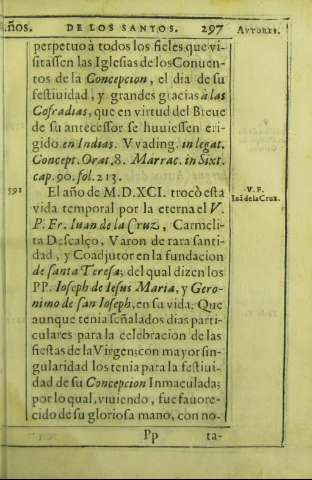 ños. DE LOS SANTOS. 297 AVTORES.
perpetuo à todos los fieles que vi-
sitassen las Iglesias de los Conuen-
tos de la Concepcion, el dia de su
festiuidad, y grandes gracias à las
Cofradias, que en virtud del Breue
de su antecessor se huuiessen eri-
gido en Indias. Vvading. in legat.
Concept. Orat, 8. Marrac. in Sixt.
cap. 90. fol. 213.
591 El año de M.D.XCI. trocò esta V. F.
vida temporal por la eterna el V. Iuā de la Cruz.
P. Fr. Iuan de la Cruz, Carmeli-
ta Descalço, Varon de rara santi-
dad, y Coadjutor en la fundacion
de santa Teresa; del qual dizen los
PP. Ioseph de Iesus Maria, y Gero-
nimo de san Ioseph, en su vida; Que
aunque tenia señalados dias parti-
culares para la celebracion de las
fiestas de la Virgen; con mayor sin-
gularidad los tenia para la festiui-
dad de su Concepcion Inmaculada;
por lo qual, viuiendo, fue fauore-
cido de su gloriosa mano, con no-
Pp ta-